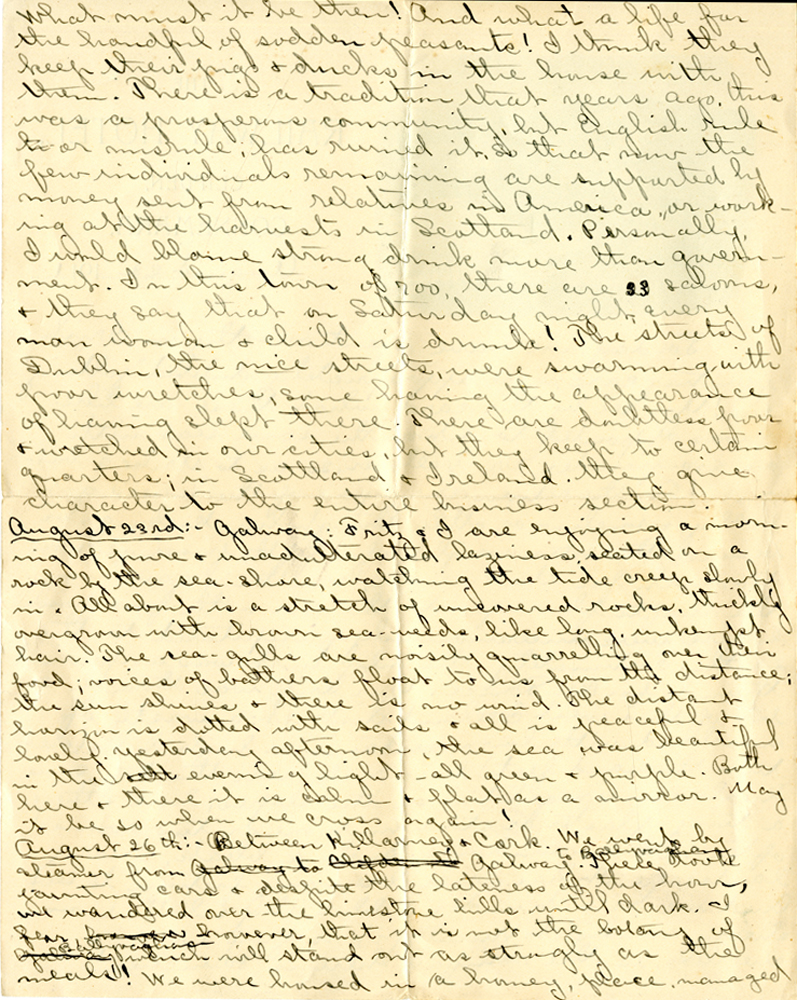 What must it be then! And what a life for
the handful of sodden peasants! I think they
keep their pigs & ducks in the house with
them. There is a tradition that years ago, this
was a prosperous community, but English rule
or misrule, has ruined it, so that now the
few individuals remaining are supported by
money sent from relatives in America, or work-
ing at the harvests in Scotland. Personally,
I would blame strong drink more than govern-
ment. In this town of 700, there are 33 saloons,
& they say that on Saturday night, every
man woman & child is drunk! The streets of
Dublin, the nice streets, were swarming with
poor wretches, some having the appearance
of having slept there. There are doubtless poor
& wretched in our cities, but they keep to certain
quarters; in Scottland & Ireland. they give
character to the entire business section.
August 23rd:- Galway: Fritz & I are enjoying a morn-
ing of pure & unadulterated laziness, seated on a
rock by the sea-shore, watching the tide creep slowly
in. All about is a stretch of uncovered rocks, thickly
overgrown with brown sea-weeds, like long, unkempt
hair. The sea-gulls are noisily quarrelling over their
food; voices of bathers float to us from the distance;
the sun shines & there is no wind. The distant
horizon is dotted with sails & all is peaceful &
lovely. yesterday afternoon, the sea was beautiful
in the evening light - all green & purple. Both
here & there it is calm & flat as a mirror. May
it be so when we cross again!
August 26th:- Between Killarney & Cork. We went by
steamer from Galway to Clifden to Galway to Ballyvaughan. There took
jaunting cars & despite the lateness of the hour,
we wandered over the limestone hills until dark. I
fear however, that it is not the botany of
Galway Ballyvaughan which will stand out as strongly as the
meals! We were housed in a homey, place, managed